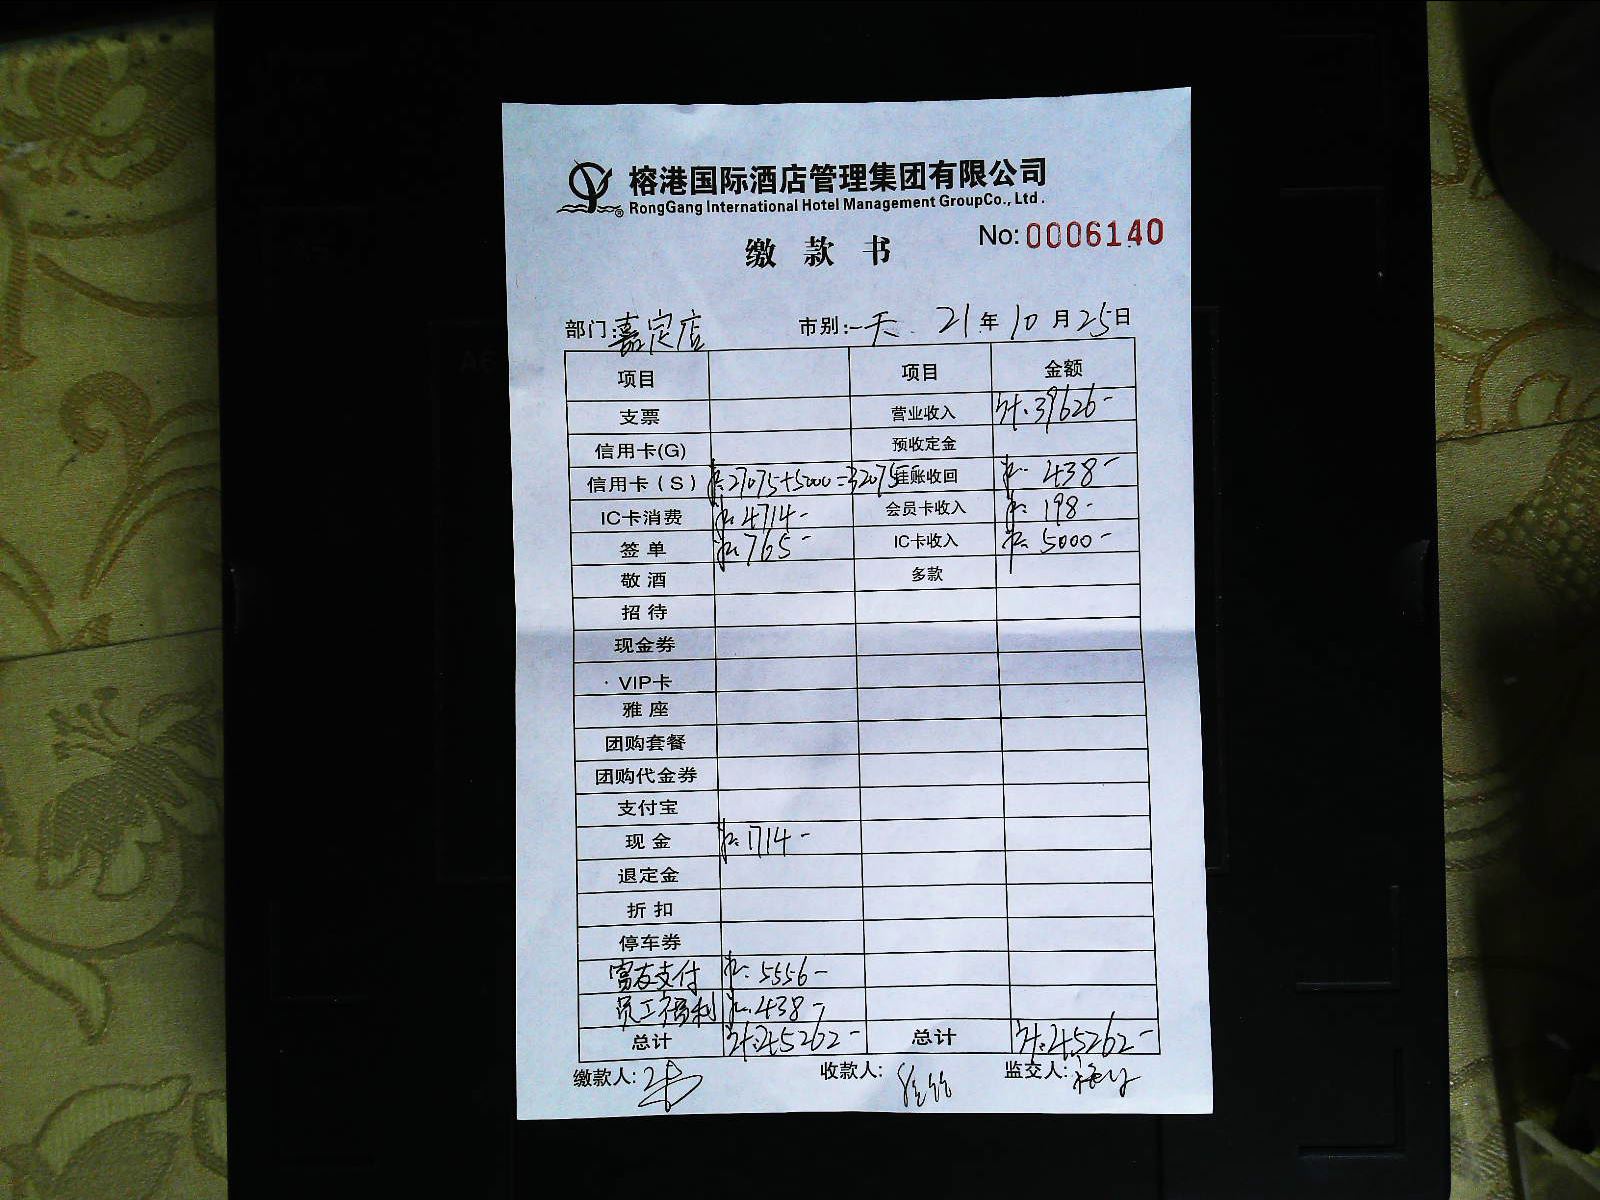 榕港国际酒店管理集团有限公司
® RongGang International Hotel Management GroupCo., Ltd.
缴 款 书 No: 0006140
部门: 嘉定店 市别: 一天 21年 10月 25日
项目 项目 金额
支票 营业收入 39626-
信用卡(G) 预收定金
信用卡(S) 27075+5000=32075 挂账收回 438-
IC卡消费 4714- 会员卡收入 198-
签 单 765- IC卡收入 5000-
敬 酒 多款
招 待
现金券
VIP卡
雅 座
团购套餐
团购代金券
支付宝
现 金 1714-
退定金
折 扣
停车券
富友支付 5556-
员工福利 438-
总计 45262- 总计 45262-
缴款人: 收款人: 监交人: